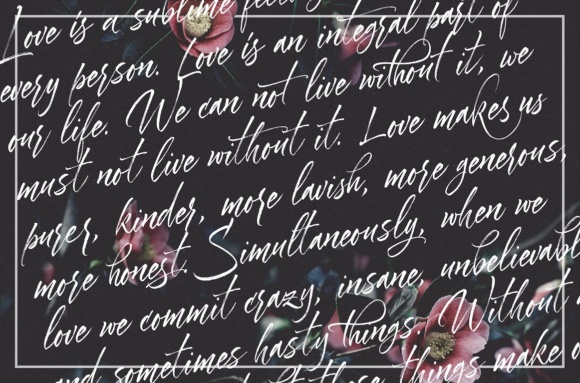 Love is a sublime
every person. Love is an integral part of
our life. We can not live without it, we
must not live without it. Love makes us
purer, kinder, more lavish, more generous,
more honest. Simultaneously, when we
love we commit crazy, insane, unbelievabl
and sometimes hasty things. Without
those things make